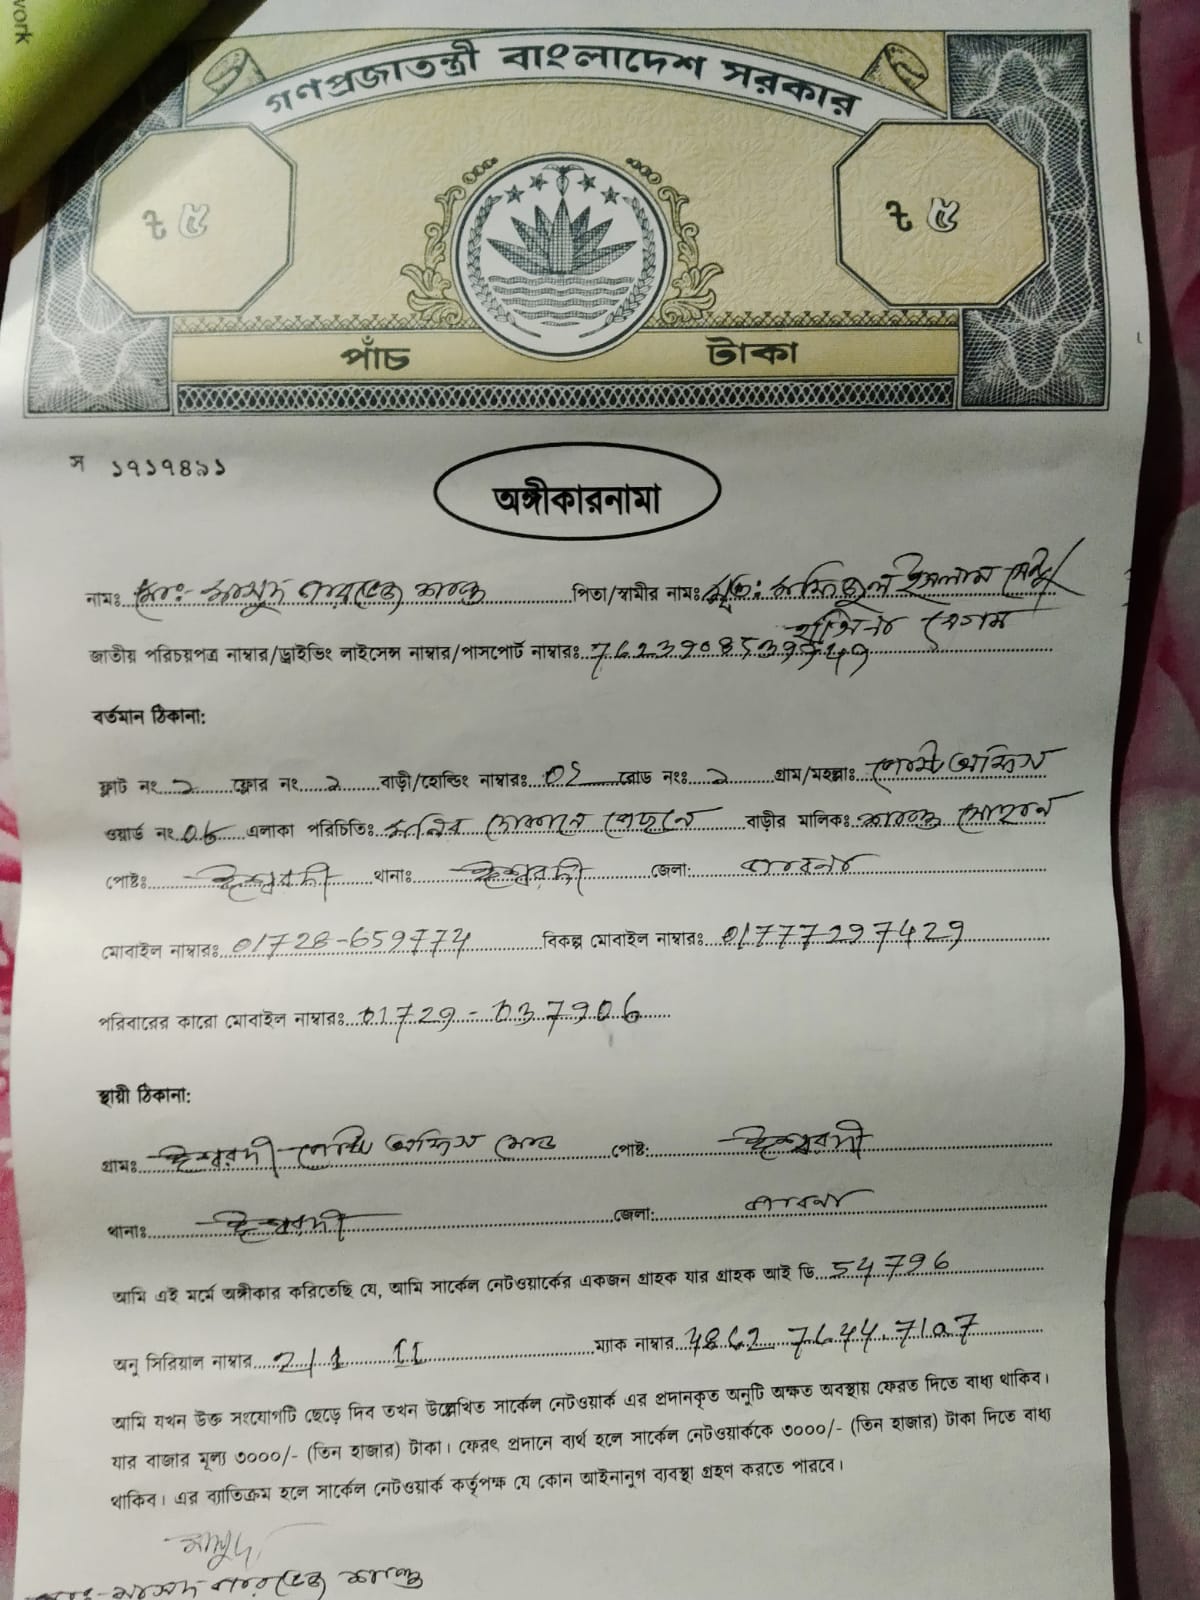 work
গণপ্রজাতন্ত্রী বাংলাদেশ সরকার
৳ ৫ ৳ ৫
পাঁচ টাকা
স ১৭১৭৪৯১
অঙ্গীকারনামা
নামঃ মোঃ- মাসুদ পারভেজ পিতা/স্বামীর নামঃ মৃতঃ ইসলাম
বেগম
জাতীয় পরিচয়পত্র নাম্বার/ড্রাইভিং লাইসেন্স নাম্বার/পাসপোর্ট নাম্বারঃ
বর্তমান ঠিকানা:
ফ্লাট নং ২ ফ্লোর নং ২ বাড়ী/হোল্ডিং নাম্বারঃ 02 রোড নংঃ ২ গ্রাম/মহল্লাঃ পোস্ট অফিস
ওয়ার্ড নং 06 এলাকা পরিচিতিঃ দোকানের পেছনে বাড়ীর মালিকঃ
পোষ্টঃ ঈশ্বরদী থানাঃ ঈশ্বরদী জেলা: পাবনা
মোবাইল নাম্বারঃ 01728-659774 বিকল্প মোবাইল নাম্বারঃ 01777297429
পরিবারের কারো মোবাইল নাম্বারঃ 01729-037906
স্থায়ী ঠিকানা:
গ্রামঃ ঈশ্বরদী পোস্ট অফিস রোড পোষ্ট: ঈশ্বরদী
থানাঃ ঈশ্বরদী জেলা: পাবনা
আমি এই মর্মে অঙ্গীকার করিতেছি যে, আমি সার্কেল নেটওয়ার্কের একজন গ্রাহক যার গ্রাহক আই ডি 54796
অনু সিরিয়াল নাম্বার 2/1 II ম্যাক নাম্বার 4862.7644.7107
আমি যখন উক্ত সংযোগটি ছেড়ে দিব তখন উল্লেখিত সার্কেল নেটওয়ার্ক এর প্রদানকৃত অনুটি অক্ষত অবস্থায় ফেরত দিতে বাধ্য থাকিব।
যার বাজার মূল্য ৩০০০/- (তিন হাজার) টাকা। ফেরৎ প্রদানে ব্যর্থ হলে সার্কেল নেটওয়ার্ককে ৩০০০/- (তিন হাজার) টাকা দিতে বাধ্য
থাকিব। এর ব্যাতিক্রম হলে সার্কেল নেটওয়ার্ক কর্তৃপক্ষ যে কোন আইনানুগ ব্যবস্থা গ্রহণ করতে পারবে।
মাসুদ
মোঃ- মাসুদ পারভেজ